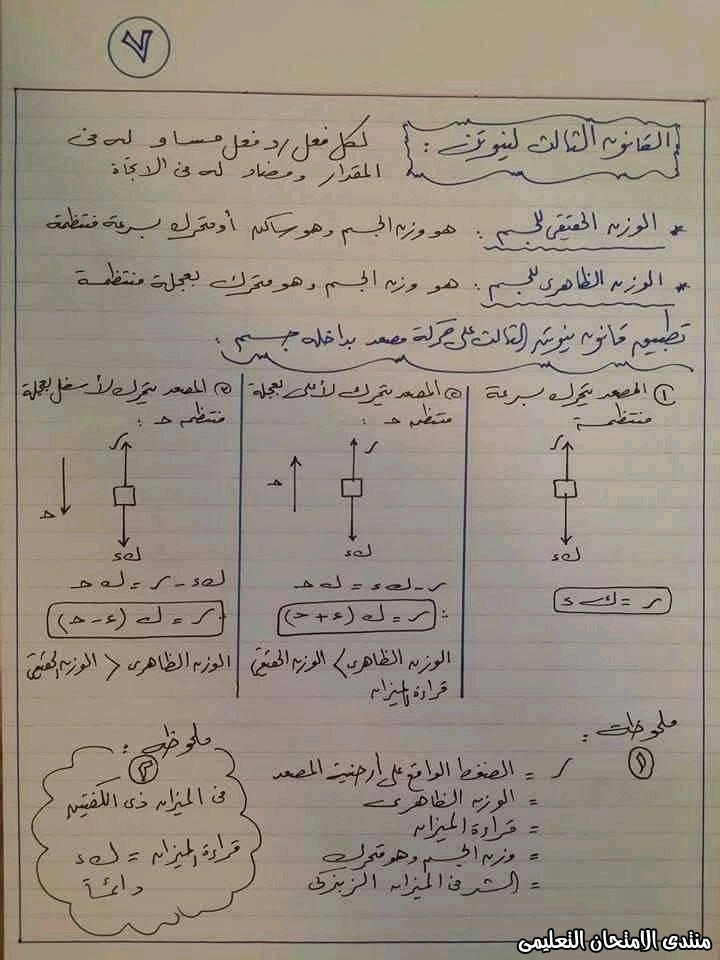 ٧
القانون الثالث لنيوتن :
لكل فعل رد فعل مساو له فى
المقدار ومضاد له فى الاتجاة
* الوزن الحقيقى للجسم : هو وزن الجسم وهو ساكن أو متحرك بسرعة منتظمة
* الوزن الظاهرى للجسم : هو وزن الجسم وهو متحرك بعجلة منتظمة
تطبيق قانون نيوتن الثالث على حركة مصعد بداخله جسم :
١ المصعد يتحرك بسرعة
منتظمة
ر
ك ء
ر = ك ء
المصعد يتحرك لأعلى بعجلة
منتظمه ح :
ر
ح
ك ء
ر - ك ء = ك ح
∴ ر = ك (ء + ح)
الوزن الظاهرى > الوزن الحقيقى
قراءة الميزان
المصعد يتحرك لأسفل بعجلة
منتظمه ح :
ر
ح
ك ء
ك ء - ر = ك ح
∴ ر = ك (ء - ح)
الوزن الظاهرى < الوزن الحقيقى
ملحوظات :
١
ر = الضغط الواقع على أرضية المصعد
= الوزن الظاهرى
= قراءة الميزان
= وزن الجسم وهو متحرك
= الشد فى الميزان الزنبركى
ملحوظه :
٢
فى الميزان ذى الكفتين
قراءة الميزان = ك ء
دائماً
منتدى الامتحان التعليمى